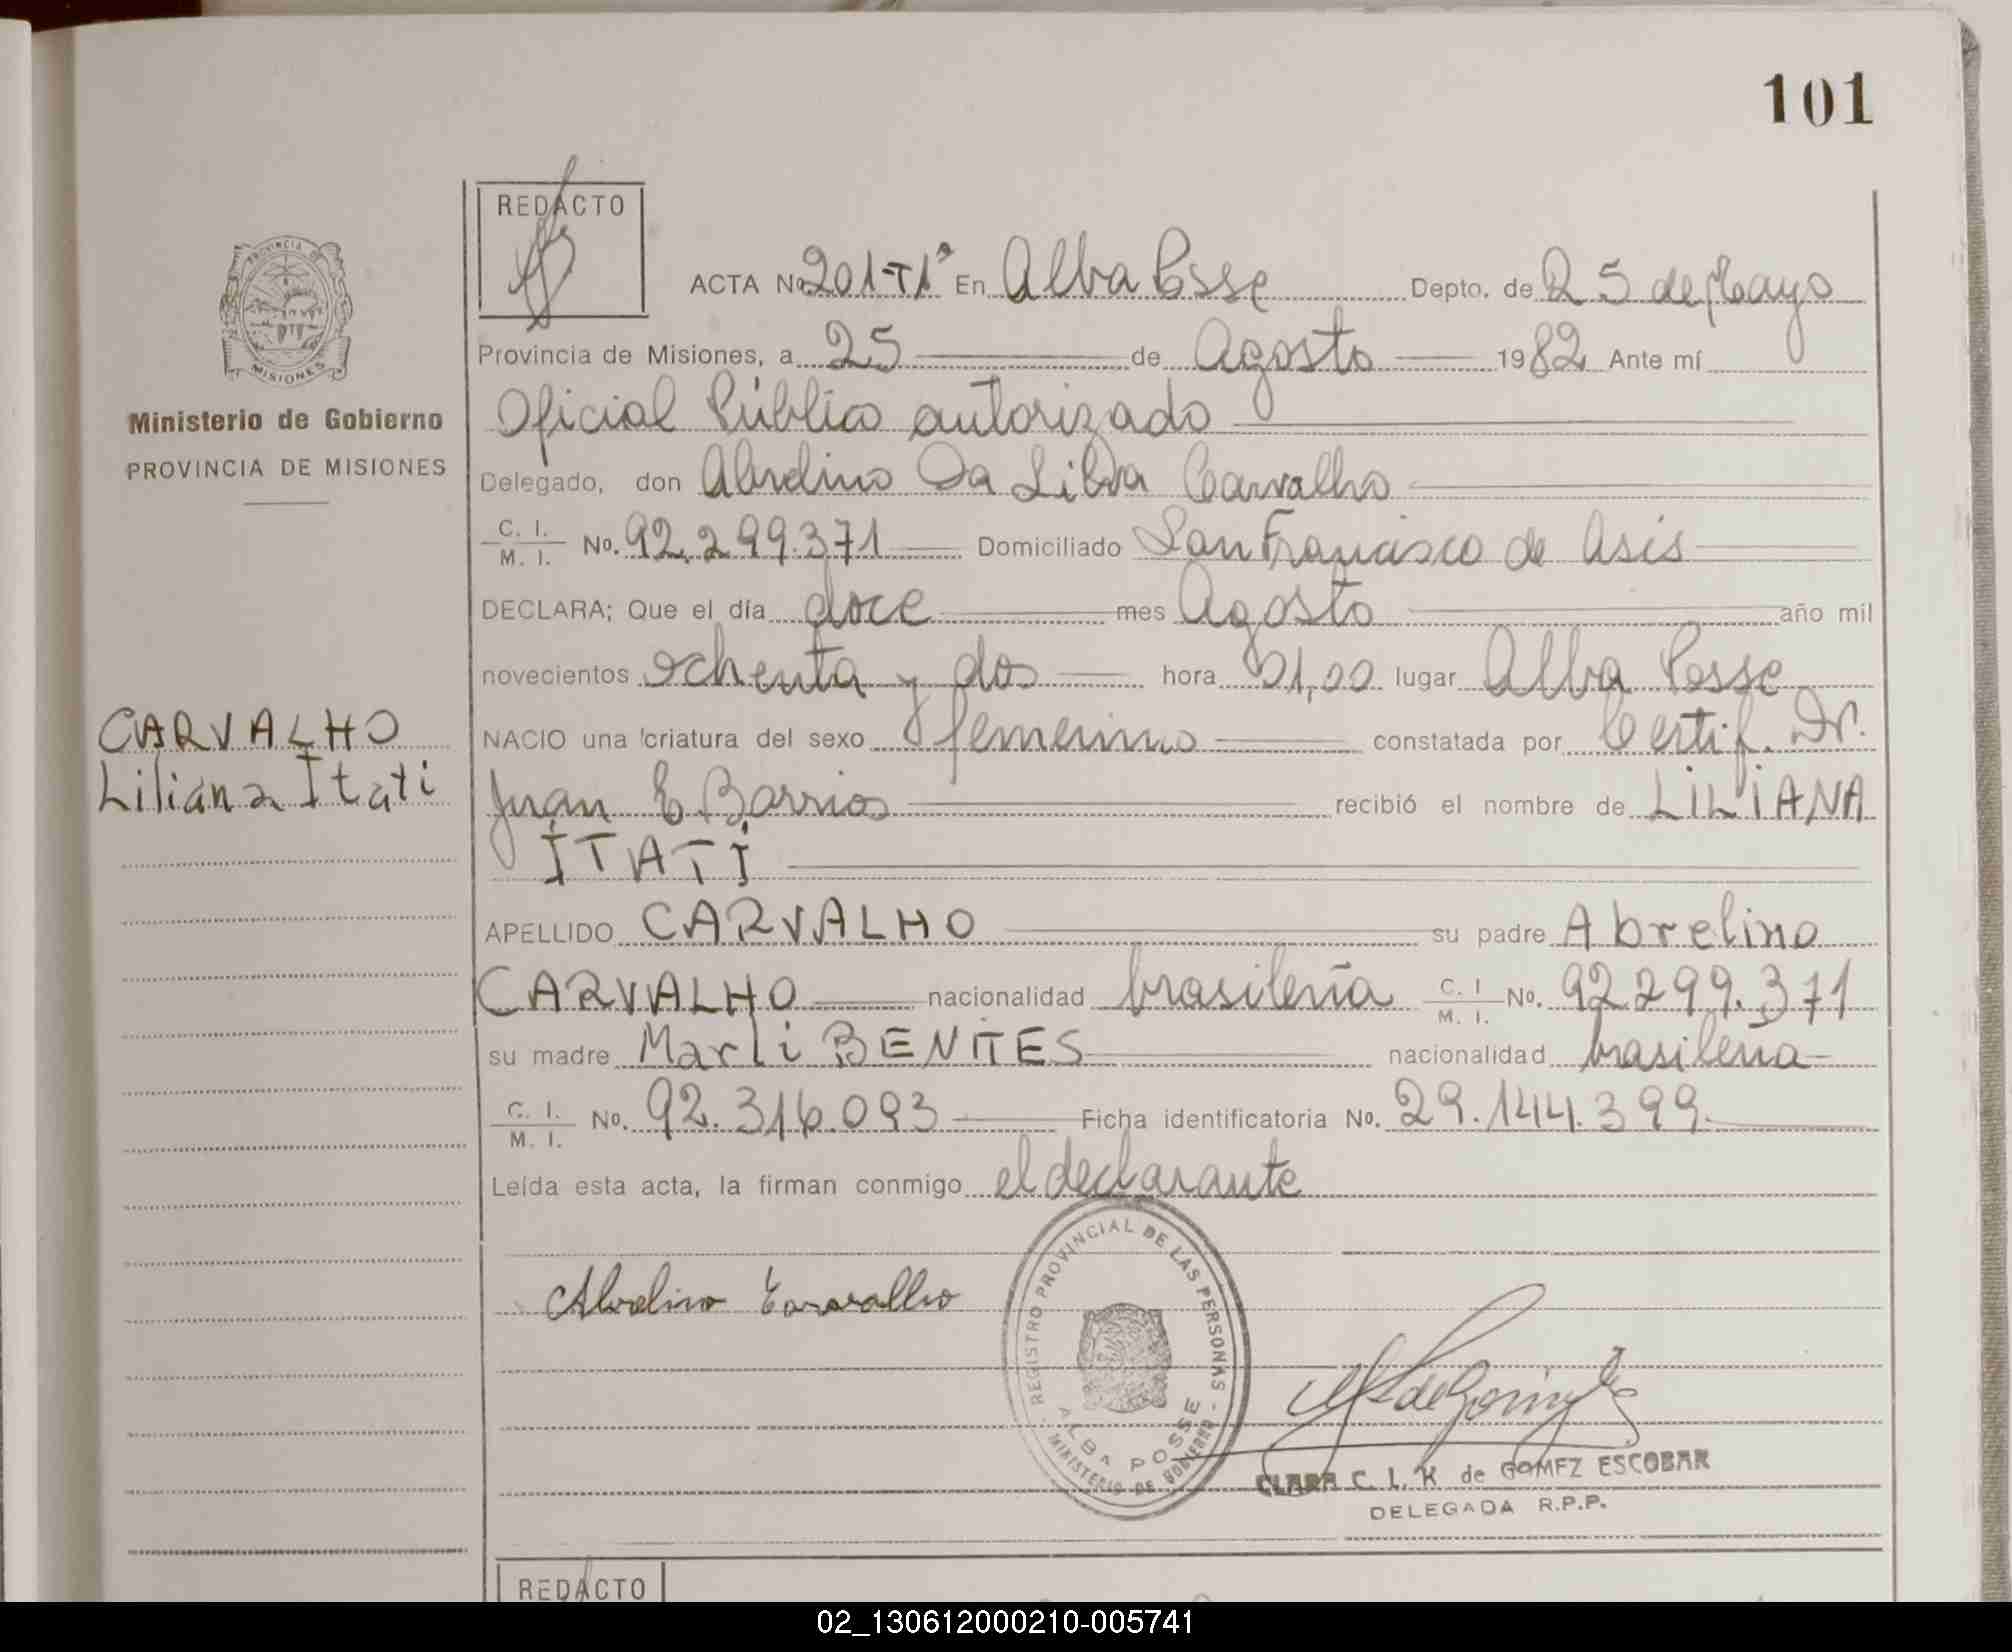 101
REDACTO
ACTA No 201-T1ª En Alba Posse Depto. de 25 de Mayo
PROVINCIA DE
MISIONES
Provincia de Misiones, a 25 de Agosto 1982 Ante mí
Ministerio de Gobierno
PROVINCIA DE MISIONES
Oficial Público autorizado
Delegado, don Abrelino Da Silva Carvalho
C. I.
M. I. No. 92.299.371 Domiciliado San Francisco de Asis
DECLARA; Que el día doce mes Agosto año mil
novecientos ochenta y dos hora 01,00 lugar Alba Posse
CARVALHO
Liliana Itati
NACIO una criatura del sexo femenino constatada por Certif. Dr.
Juan E. Barrios recibió el nombre de LILIANA
ITATÍ
APELLIDO CARVALHO su padre Abrelino
CARVALHO nacionalidad brasileña C. I
M. I. No. 92299.371
su madre Marli BENITES nacionalidad brasileña
C. I.
M. I. No. 92.316.093 Ficha identificatoria No. 29.144.399.
Leída esta acta, la firman conmigo el declarante
Abrelino Carvalho
REGISTRO PROVINCIAL DE LAS PERSONAS
ALBA POSSE
MINISTERIO DE GOBIERNO
CLARA C. L. K de GOMEZ ESCOBAR
DELEGADA R.P.P.
REDACTO
02_130612000210-005741